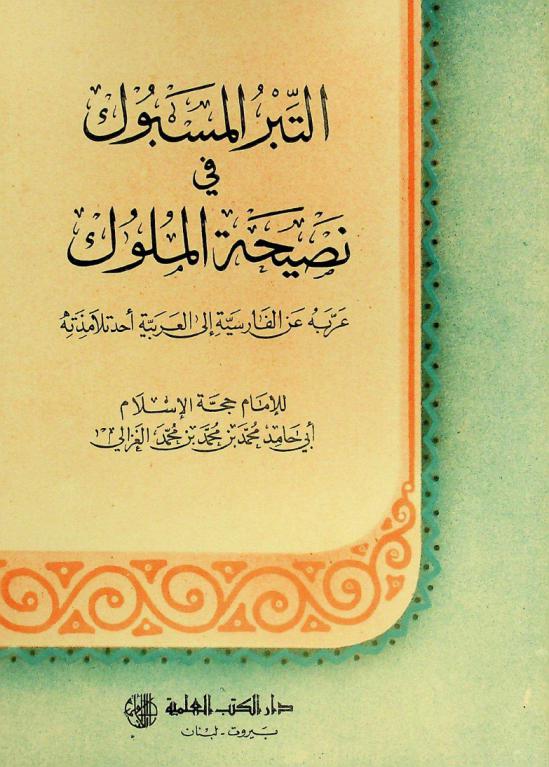 التِّبْرُ المَسْبُوك
في
نَصِيحَة المُلُوك
عَرَّبَهُ عَن الفَارِسيَّة إلى العَرَبيَّة أحَد تلامِذَتِهِ
للإمَام حجَّة الإسْلَام
أبي حَامِد محمَّد بن محمَّد بن محمَّد الغَزالي
دار الكتب العلمية
بَيروت - لبنان